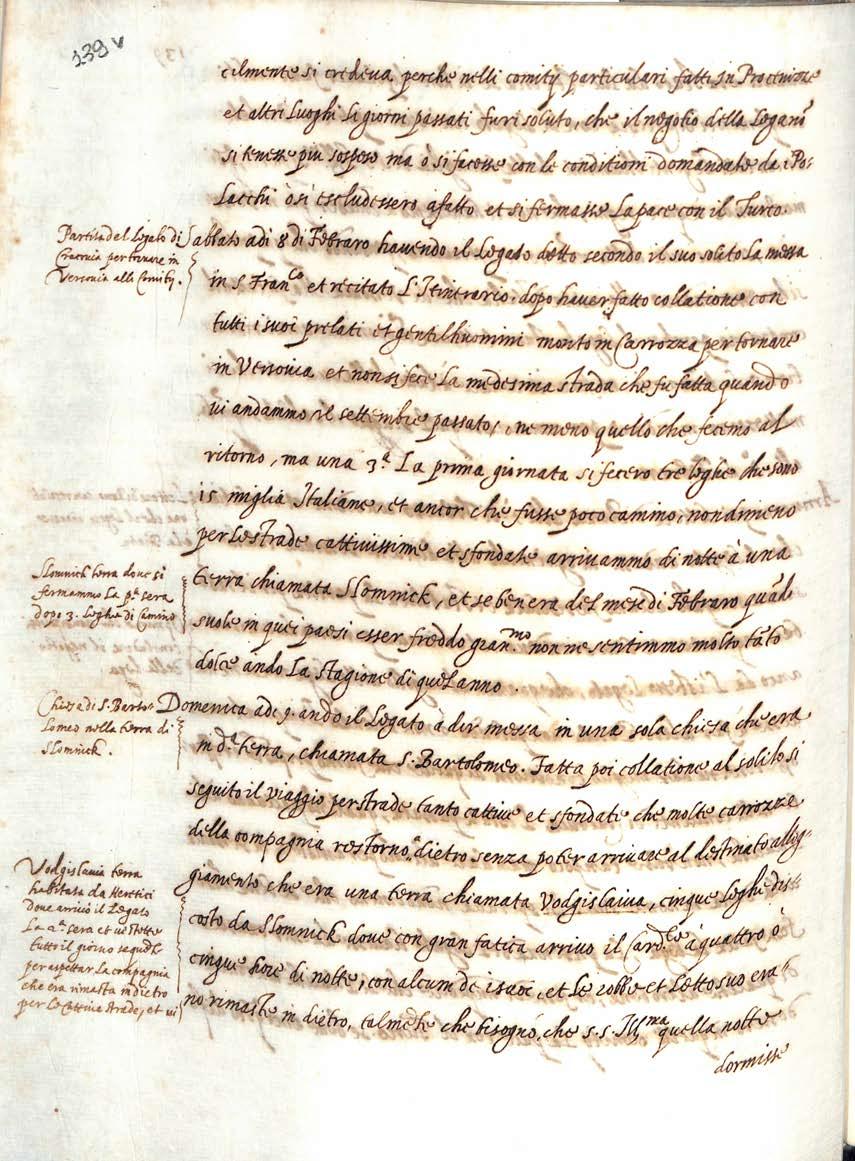 139 v
cilmente si credeva perche nelli comitij particulari fatti in Provinze
et altri Luoghi li giorni passati fu risoluto, che il negotio della Lega nõ
si tenesse piu sospeso ma ò si facesse con le conditioni domandate da i Po-
lacchi ò si escludessero afatto et si fermasse La pace con il Turco.
Partita del Legato di
Cracovia per tornare in
Versovia alli Comitij.
Sabbato adi 8 di Febraro havendo il Legato detto secondo il suo solito La messa
in S. Fran.co et recitato L'Itinerario. dopo haver fatto collatione con
tutti i suoi prelati et gentilhuomini monto in Carrozza per tornare
in Versovia et non si fece La medesima strada che fu fatta quando
vi andammo il settembre passato, ne meno quello che fecemo al
ritorno, ma una 3.a La prima giornata si fecero tre leghe che sono
15 miglia Italiane, et ancor che fusse poco camino, nondimeno
per le strade cattivissime et sfondate arrivammo di notte à una
Slomnick terra dove si
fermammo La p.a sera
dopo 3. Leghe di Camino
terra chiamata Slomnick, et se ben era del mese di Febraro quãdo
suole in quei paesi esser freddo gran.mo non ne sentimmo molto tãto
dolce andò La stagione di quel anno.
Chiesa di S. Barto-
Lomeo nella terra di
Slomnick.
Domenica adi 9. andò il Legato à dir messa in una sola chiesa che era
in d.a terra, chiamata S. Bartolomeo. Fatta poi collatione al solito si
seguito il viaggio per strade tanto cattive et sfondate che molte carrozze
della compagnia restorno à dietro senza poter arrivare al destinato allog-
giamento che era una terra chiamata Vodgislaiva, cinque Leghe dis-
Vodgislavia terra
habitata da Heretici
dove arrivò il Legato
La 2.a sera et vi stette
tutto il giorno seguẽte
per aspettar La compagnia
che era rimasta in dietro
per le Cattive strade, et vi
costo da Slomnick dove con gran fatica arrivo il Card.le à quattro ò
cinque hore di notte, con alcuni de i suoi, et Le robbe et Letto suo era-
no rimaste in dietro, talmẽte che bisognò, che S. S. Ill.ma quella notte
dormisse